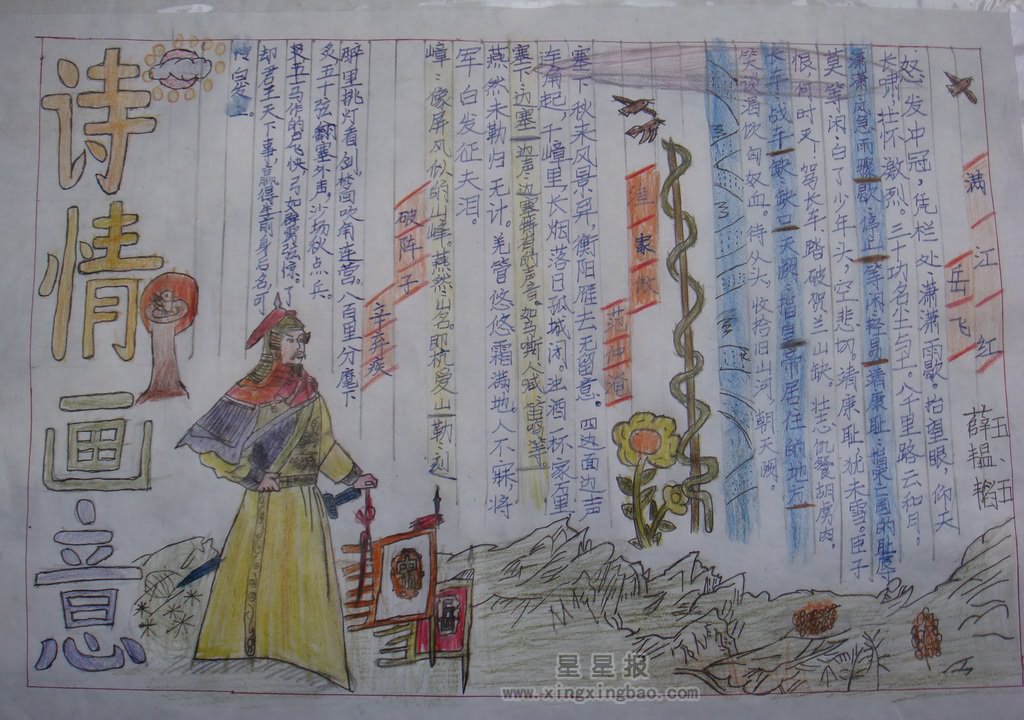 诗情画意
满江红
岳飞
五、五
薛韫韬
怒发冲冠，凭栏处、潇潇雨歇。抬望眼，仰天
长肃，壮怀激烈。三十功名尘与土。八千里路云和月。
潇潇：风急雨骤 歇：停止 等闲：轻易 靖康耻： 亡国的耻辱
莫等闲、白了少年头，空悲切。清康耻，犹未雪。臣子
恨，何时灭，驾长车踏破贺兰山缺。壮志饥餐胡虏肉，
长车：战车 缺：缺口 天阙：指皇帝居住的地方
笑谈渴饮匈奴血。待从头、收拾旧山河，朝天阙。
渔家傲
范仲淹
塞下秋来风景异，衡阳雁去无留意。四边面边声
连角起，千嶂里，长烟落日孤城闭。浊酒一杯家万里
塞下：边塞 边声：边塞特有的声音。如马嘶人喊 等。
燕然未勒归无计。羌管悠悠霜满地。人不寐将
军白发征夫泪。
嶂：像屏风似的山峰。燕然：山名。即杭爱山 勒：刻
破阵子
辛弃疾
醉里挑灯看剑，梦回吹角连营。八百里分麾下
炙五十弦翻塞外声，沙场秋点兵。
马作的卢飞快，弓如霹雳弦惊。了
却君王天下事，赢得生前身后名，可
怜白发生。
岳
星星报
www.xingxingbao.com